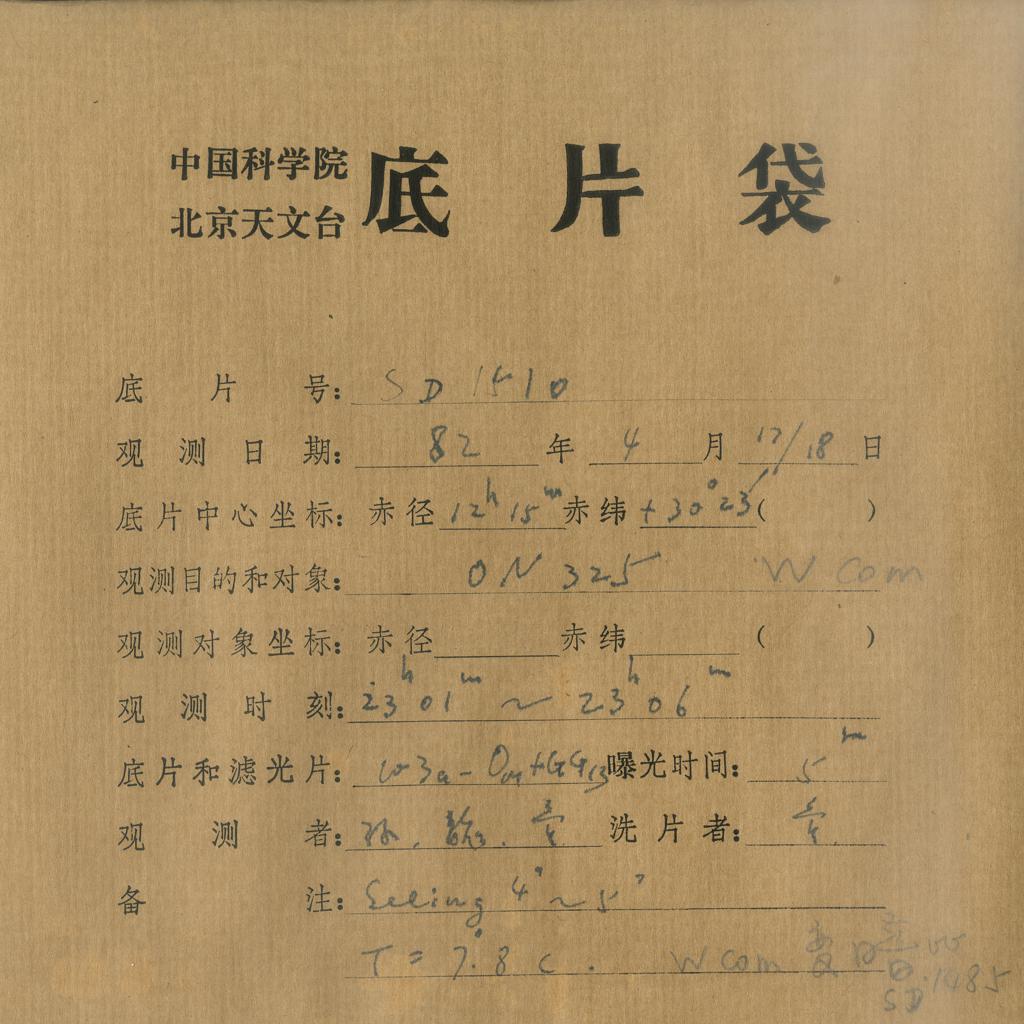 中国科学院
北京天文台
底片袋
底片号: SD 1510
观测日期: 82 年 4 月 17/18 日
底片中心坐标: 赤径 12h 15m 赤纬 +30°23′ ( )
观测目的和对象: ON 325 W Com
观测对象坐标: 赤径 赤纬 ( )
观测时刻: 23h 01m ~ 23h 06m
底片和滤光片: 曝光时间: 5m
观测者: 孙. 洗片者:
备注: Seeing 4" ~ 5"
T = 7.°8 C. W Com
SD.1485